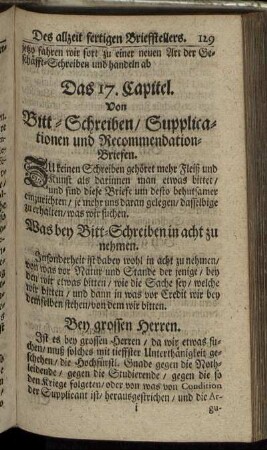 Des allzeit fertigen Briefstellers. 129
jetzo fahren wir fort zu einer neuen Art der Ge-
schäffts-Schreiben und handeln ab
Das 17. Capitel.
Von
Bitt-Schreiben/ Supplica-
tionen und Recommendation-
Briefen.
ZU keinen Schreiben gehöret mehr Fleiß und
Kunst als darinnen man etwas bittet/
und sind diese Briefe um desto behutsamer
einzurichten/ je mehr uns daran gelegen/ dasselbige
zu erhalten/ was wir suchen.
Was bey Bitt-Schreiben in acht zu
nehmen.
Insonderheit ist dabey wohl in acht zu nehmen/
von was vor Natur und Stande der jenige/ bey
den wir etwas bitten/ wie die Sache sey/ welche
wir bitten/ und dann in was vor Credit wir bey
demselben stehen/ von dem wir bitten.
Bey grossen Herren.
Ist es bey grossen Herren/ da wir etwas su-
chen/ muß solches mit tieffster Unterthänigkeit ge-
schehen/ die Hochfürstl. Gnade gegen die Noth-
leidende/ gegen die Studierende/ gegen die so
den Kriege folgeten/ oder von was von Condition
der Supplicant ist/ herausgestrichen/ und die Ar-
i gu-